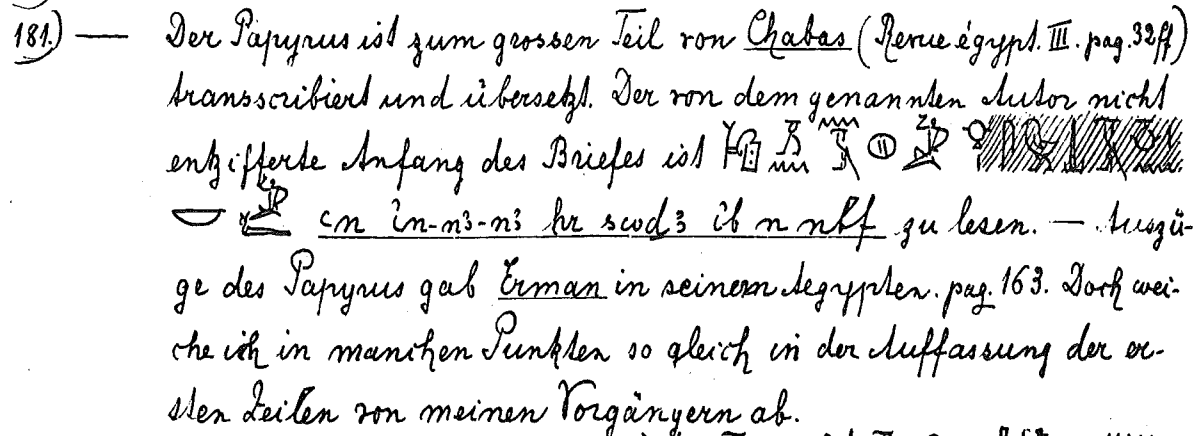 181.) — Der Papyrus ist zum grossen Teil von Chabas (Revue égypt. III. pag. 32ff)
transscribiert und übersetzt. Der von dem genannten Autor nicht
entzifferte Anfang des Briefes ist
hr ib n nbf zu lesen. — Auszü-
ge des Papyrus gab Erman in seinem Aegypten. pag. 163. Doch wei-
che ich in manchen Punkten so gleich in der Auffassung der er-
sten Zeilen von meinen Vorgängern ab.